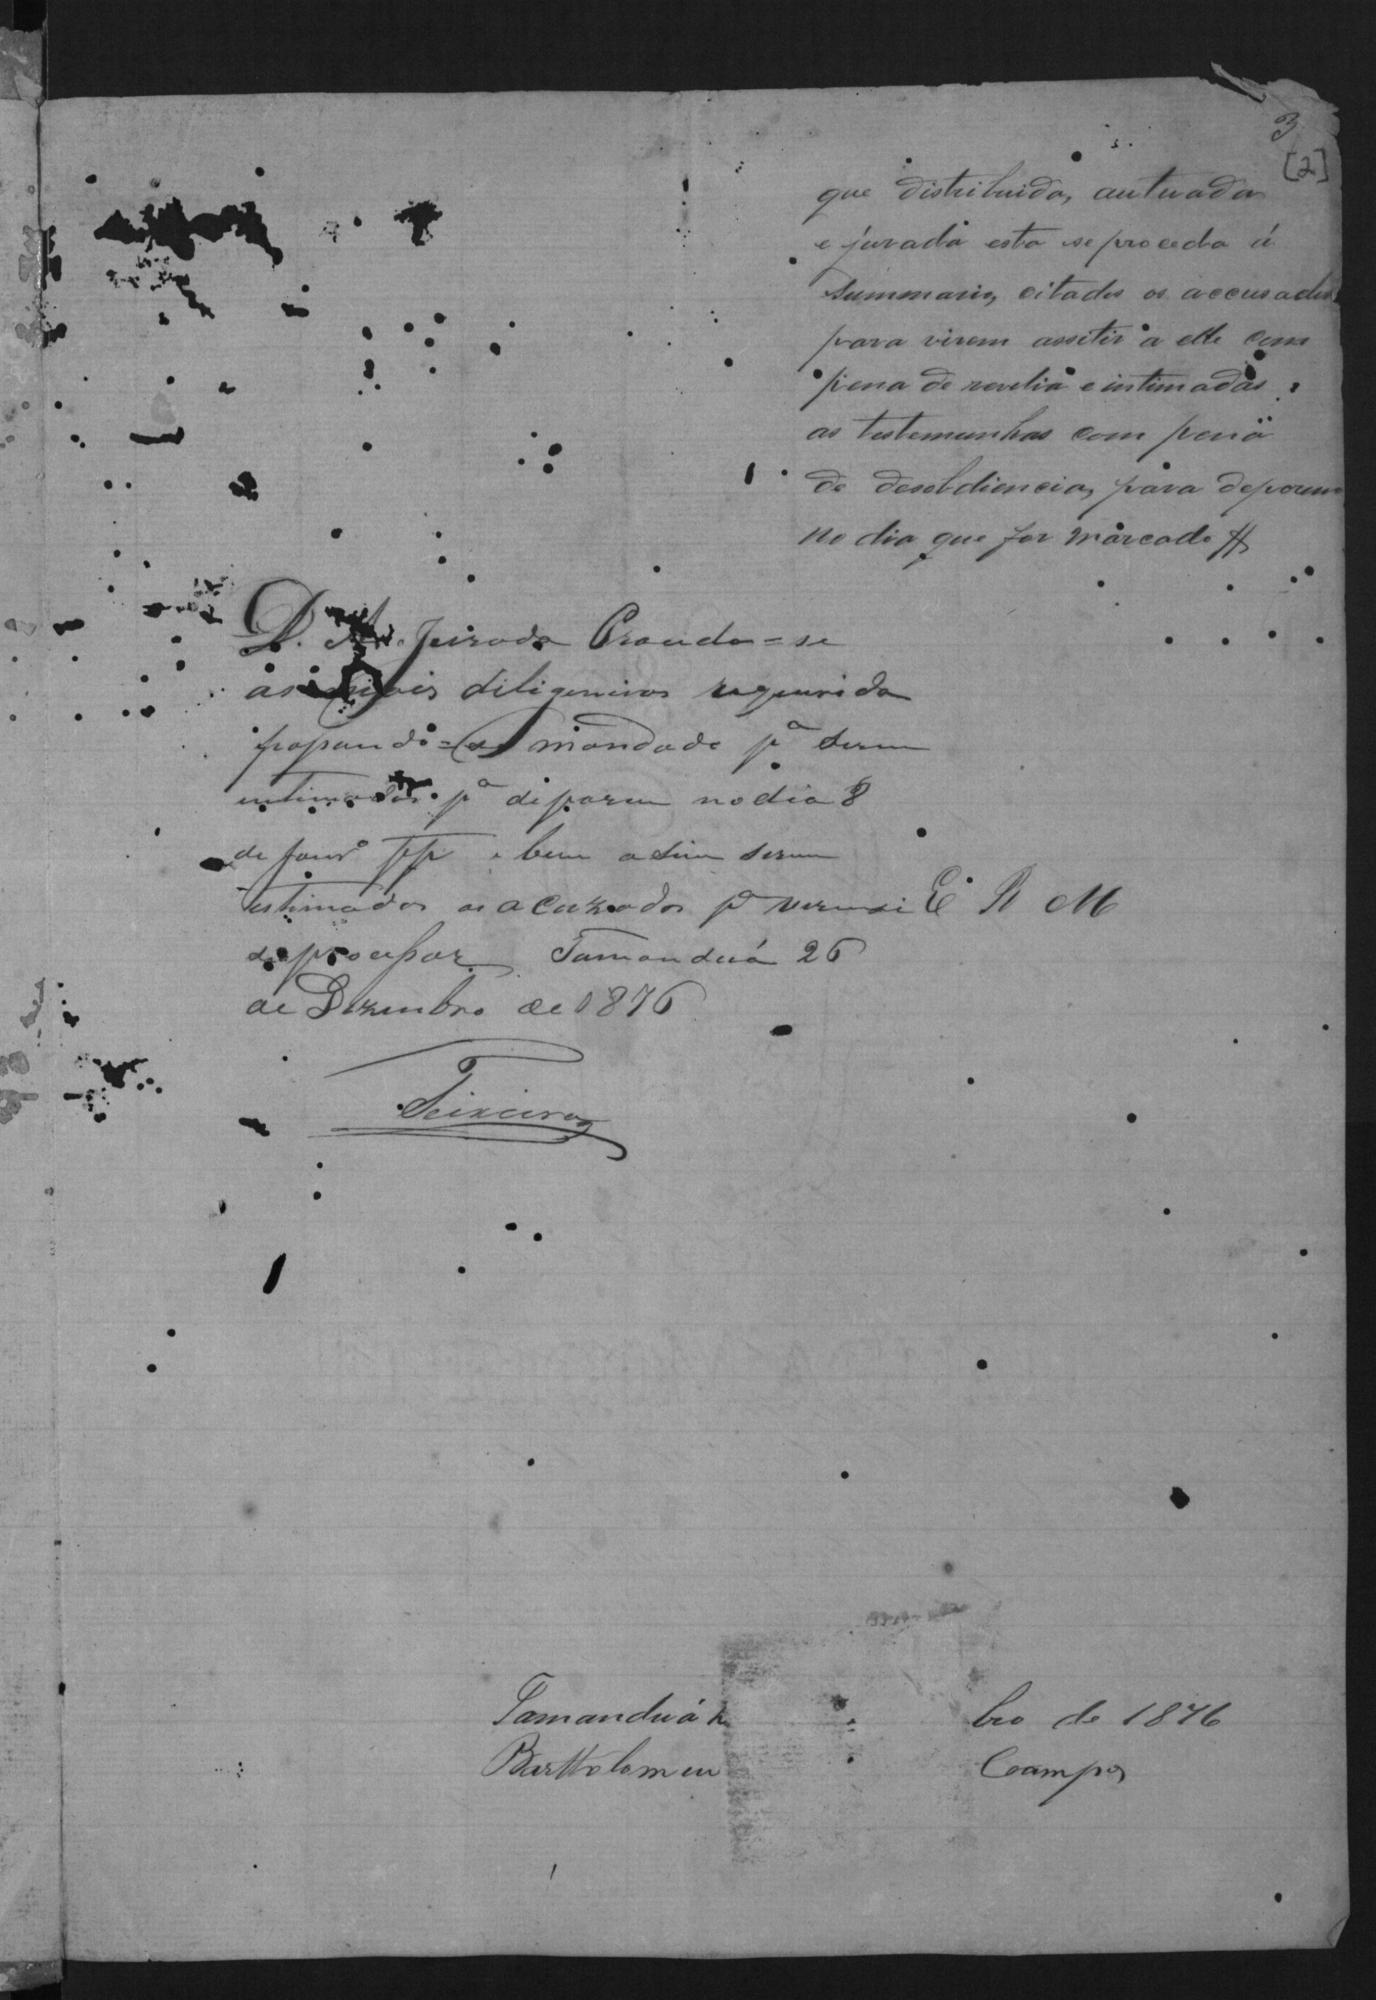 3
[2]
que distribuida, autuada
e jurada esta se proceda á
summario, citados os accusados
para virem assitir a elle com
pena de revelia e intimadas
as testemunhas com pena
de desobdiencia, para deporem
no dia que for marcado
D. A. Jurada Proceda=se
as mais diligencias requerida
passando=se mandado pª serem
intimados pª deporem no dia 8
de janrº e bem assim serem
intimados os acuzados pª verem
se processar. Tamanduá 26
de Dezembro de 1876
Teixeira
E R M
Tamanduá bro de 1876
Bartholomeu Campos